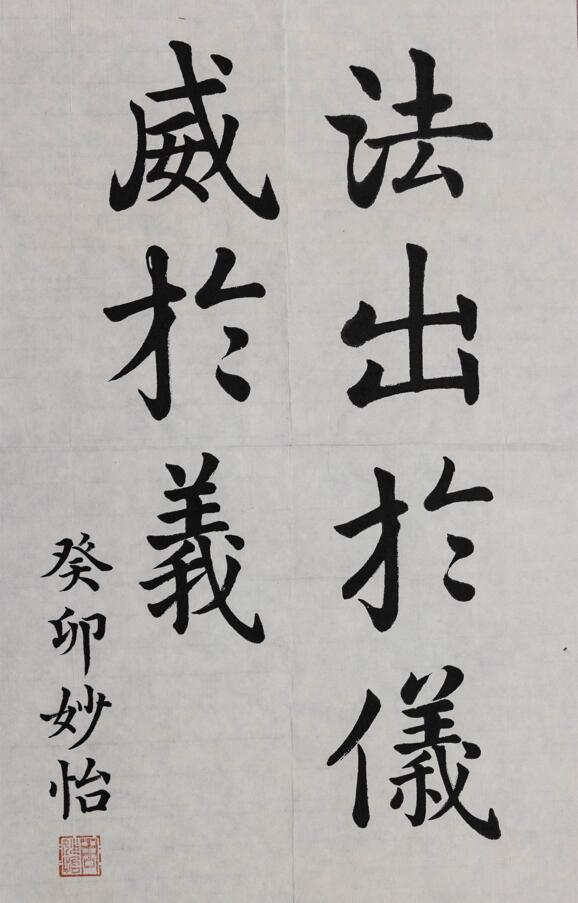 法出於儀
威於義
癸卯妙怡